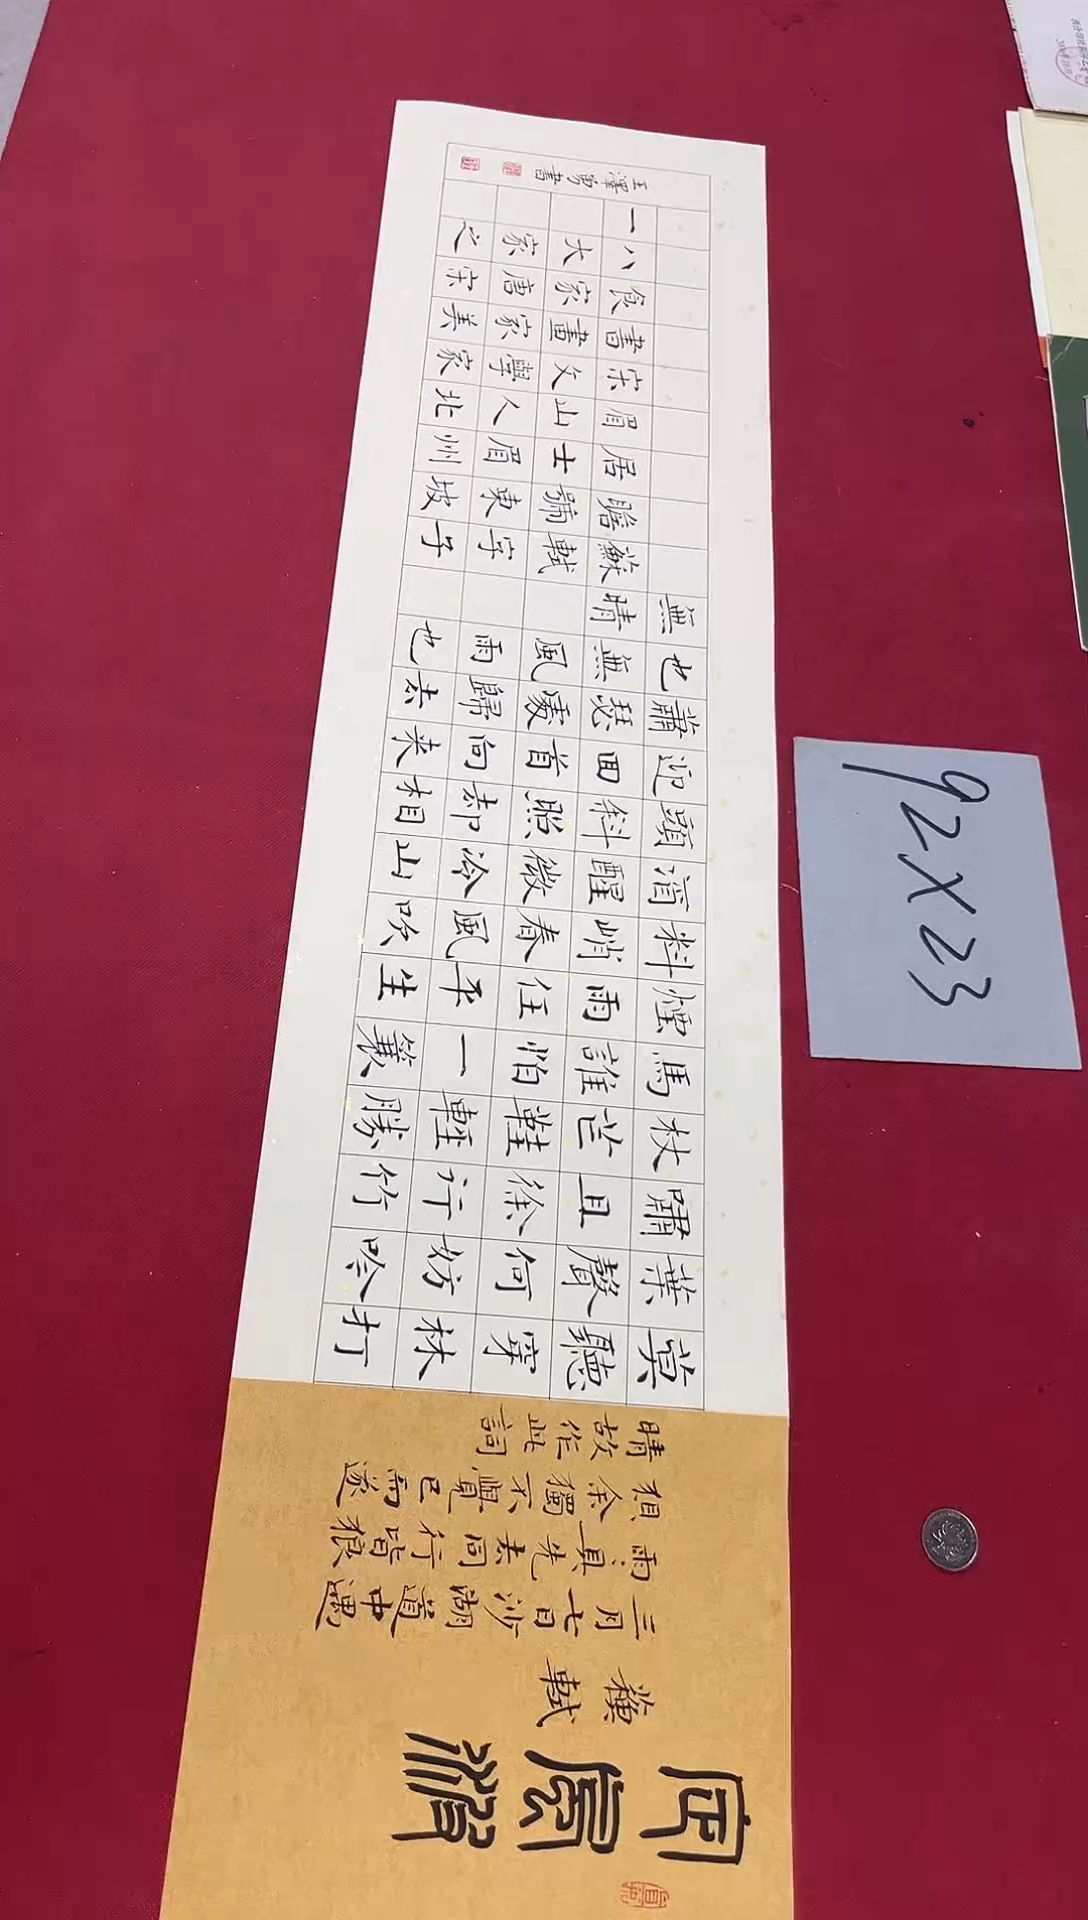 定風波
蘇軾
三月七日沙湖道中遇
雨雨具先去同行皆狼
狽余獨不覺已而遂
晴故作此詞
莫聽穿林打
葉聲何妨吟
嘯且徐行竹
杖芒鞋輕勝
馬誰怕一蓑
煙雨任平生
料峭春風吹
酒醒微冷山
頭斜照却相
迎回首向来
蕭瑟處歸去
也無風雨也
無晴
蘇軾字子
瞻號東坡
居士眉州
眉山人北
宋文學家
書畫家美
食家唐宋
八大家之
一
王澤勇書
92X23